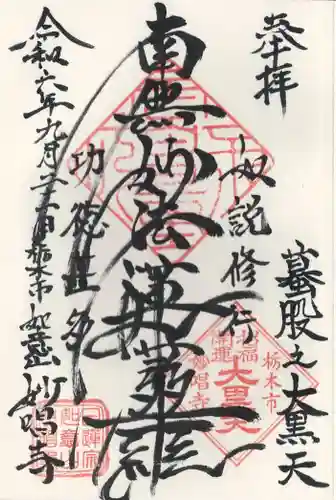 奉拝
蟇股之大黒天
如説修行
南無妙法蓮華経
功徳甚多
令和六年九月二十一日 栃木市 如意山 妙唱寺
栃木市
招福
大黒天
開運
妙唱寺